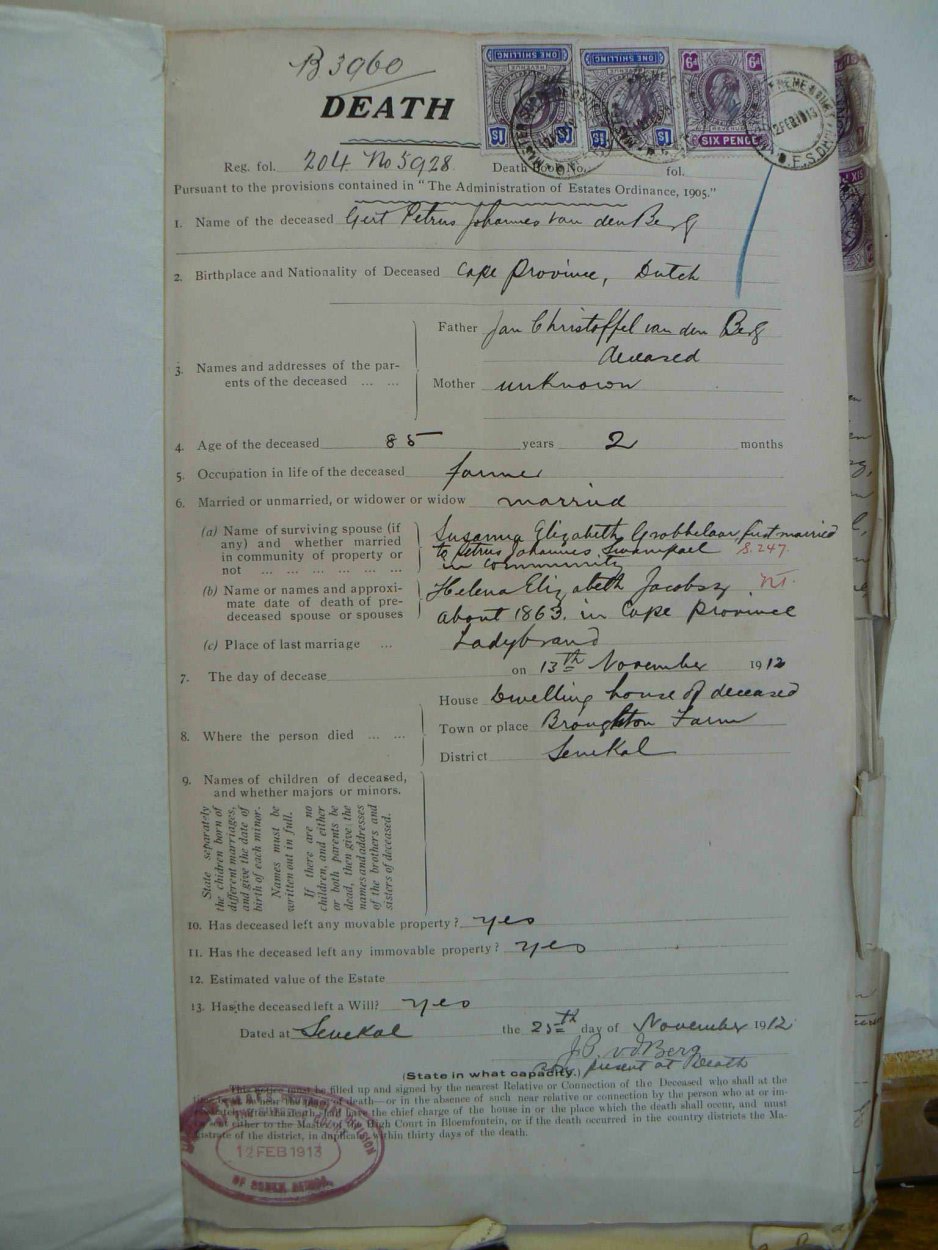 B 3960
DEATH
ONE SHILLING
ONE SHILLING
6d 6d
1S 1S
SIX PENCE
12 FEB 1913
Reg. fol. 204 No 5928 Death Book No. fol.
Pursuant to the provisions contained in "The Administration of Estates Ordinance, 1905."
1. Name of the deceased Gert Petrus Johannes van den Berg
2. Birthplace and Nationality of Deceased Cape Province, Dutch
3. Names and addresses of the par-
ents of the deceased ... ...
Father Jan Christoffel van den Berg
deceased
Mother unknown
4. Age of the deceased 85 years 2 months
5. Occupation in life of the deceased farmer
6. Married or unmarried, or widower or widow married
(a) Name of surviving spouse (if
any) and whether married
in community of property or
not ... ... ... ... ...
Susanna Elizabeth Grobbelaar, first married
to Petrus Johannes Swanepoel S.247.
in community
(b) Name or names and approxi-
mate date of death of pre-
deceased spouse or spouses
Helena Elizabeth Jacobsz
about 1863. in Cape Province
(c) Place of last marriage ... Ladybrand
7. The day of decease on 13th November 1912
8. Where the person died ... ...
House Dwelling house of deceased
Town or place Broughton Farm
District Senekal
9. Names of children of deceased,
and whether majors or minors.
State separately
the children born of
different marriages,
and give the date of
birth of each minor.
Names must be
written out in full.
If there are no
children, and either
or both parents be
dead, then give the
names and addresses
of the brothers and
sisters of deceased.
10. Has deceased left any movable property? yes
11. Has the deceased left any immovable property? yes
12. Estimated value of the Estate
13. Has the deceased left a Will? yes
Dated at Senekal the 25th day of November 1912
J.P. v d Berg
present at Death
(State in what capacity.)
This notice must be filled up and signed by the nearest Relative or Connection of the Deceased who shall at the
of death—or in the absence of such near relative or connection by the person who at or im-
the death, have the chief charge of the house in or the place which the death shall occur, and must
sent either to the Master of the High Court in Bloemfontein, or if the death occurred in the country districts the Ma-
gistrate of the district, in duplicate within thirty days of the death.
12 FEB 1913